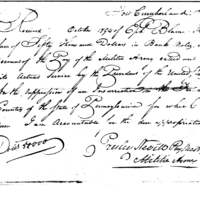 Fort Cumberland
Received October 1794 of Eph Blaine
Sum of Fifty Thousand Dollars in Bank Notes
account of the Pay of the Militia Army called out
into Actual Service by the President of the United States
for the Suppression of an Insurrection in the
Counties of the State of Pennsylvania for which
I am Accountable on the due appropriation
Presley Nevill Pay Mas
Dols 50000
Militia Army